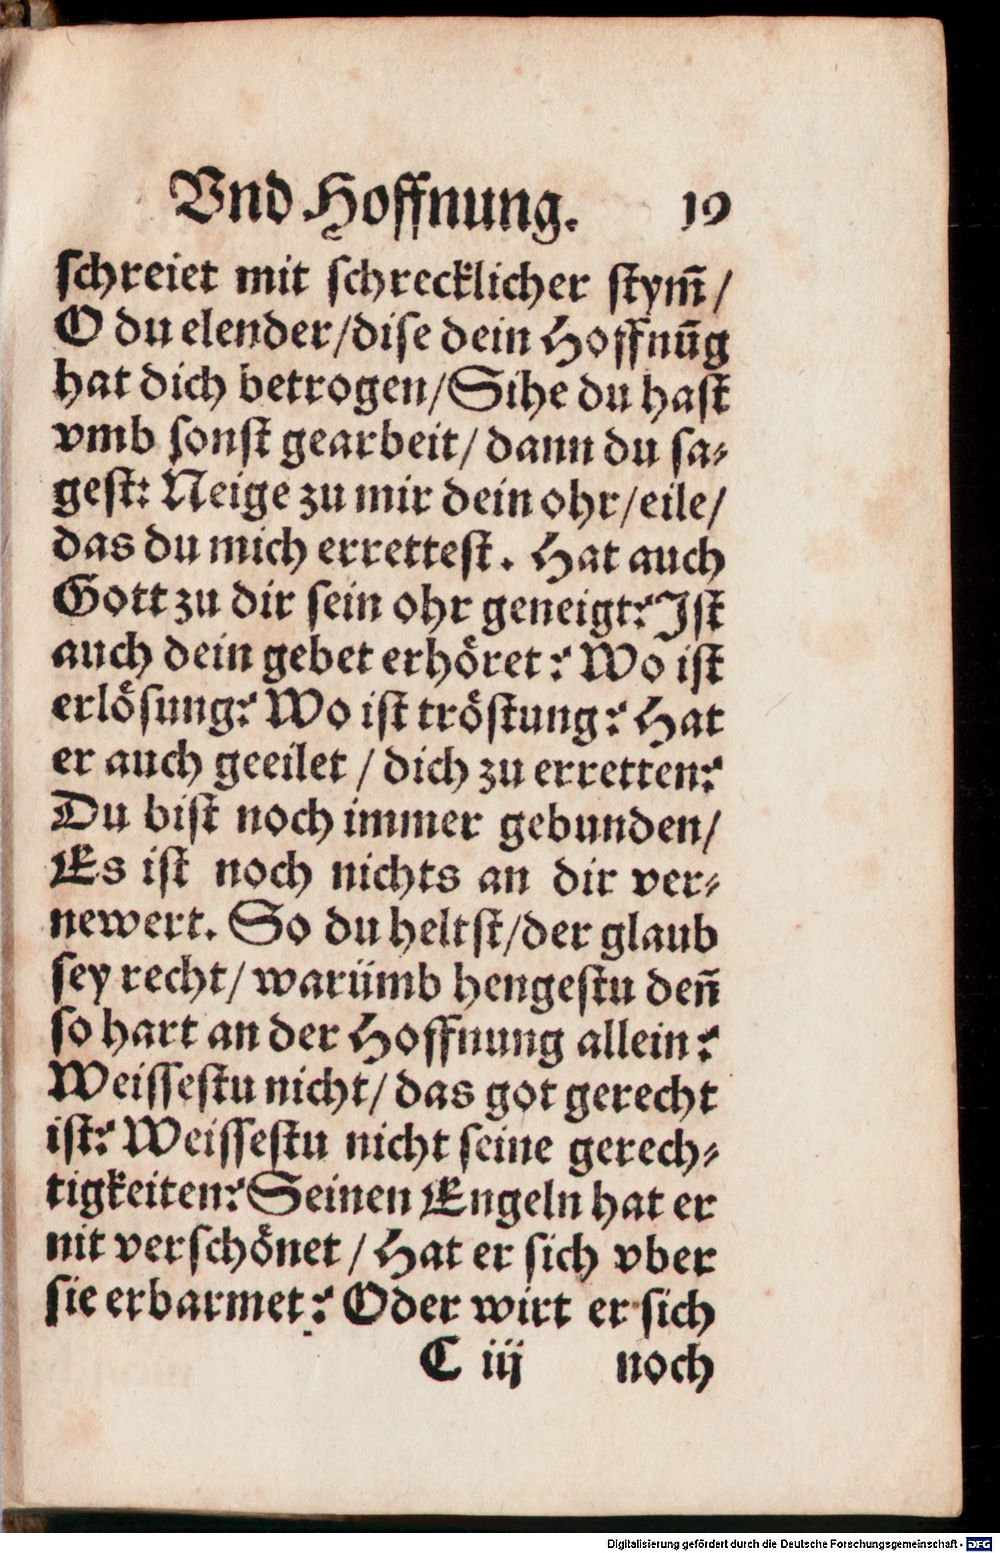 Vnd Hoffnung. 19
schreiet mit schrecklicher stym̃/
O du elender/dise dein Hoffnūg
hat dich betrogen/Sihe du hast
vmb sonst gearbeit/ dann du sa⸗
gest: Neige zu mir dein ohr/eile/
das du mich errettest. Hat auch
Gott zu dir sein ohr geneigt? Ist
auch dein gebet erhöret? Wo ist
erlösung? Wo ist tröstung? Hat
er auch geeilet / dich zu erretten?
Du bist noch immer gebunden/
Es ist noch nichts an dir ver⸗
newert. So du heltst/der glaub
sey recht/ warümb hengestu deñ
so hart an der Hoffnung allein?
Weissestu nicht/ das got gerecht
ist? Weissestu nicht seine gerech⸗
tigkeiten? Seinen Engeln hat er
nit verschönet / Hat er sich vber
sie erbarmet? Oder wirt er sich
C iij noch
Digitalisierung gefördert durch die Deutsche Forschungsgemeinschaft - DFG